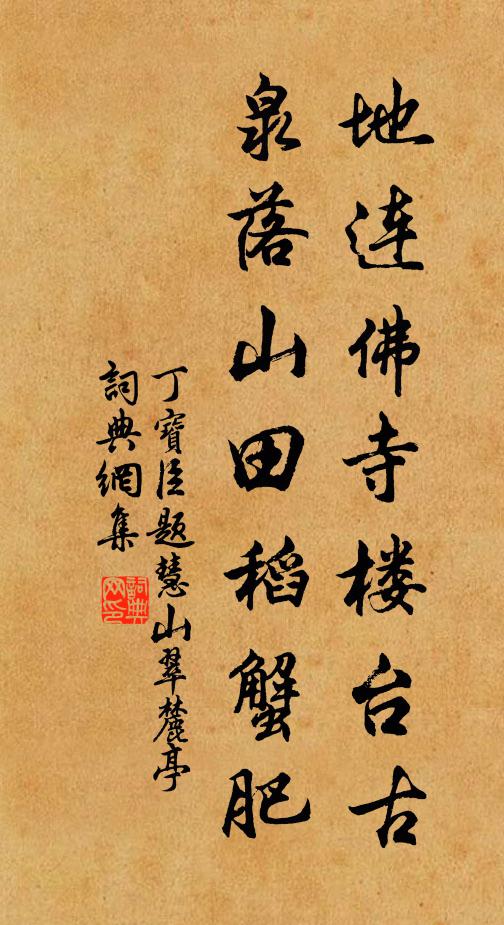 地连佛寺楼台古
泉落山田稻蟹肥
丁寶臣题慧山翠麓亭
詞典網集
詞典网印